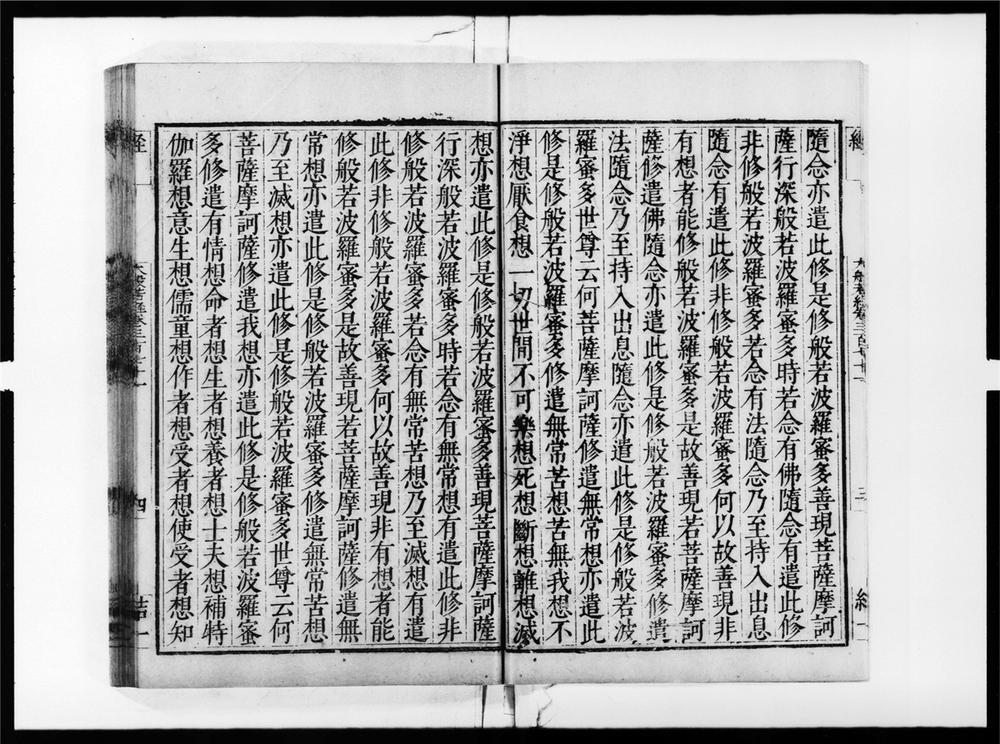 隨念亦遣此修是修般若波羅蜜多善現菩薩摩訶
薩行深般若波羅蜜多時若念有佛隨念有遣此修
非修般若波羅蜜多若念有法隨念乃至持入出息
隨念有遣此修非修般若波羅蜜多何以故善現非
有想者能修般若波羅蜜多是故善現若菩薩摩訶
薩修遣佛隨念亦遣此修是修般若波羅蜜多修遣
法隨念乃至持入出息隨念亦遣此修是修般若波
羅蜜多世尊云何菩薩摩訶薩修遣無常想亦遣此
修是修般若波羅蜜多修遣無常苦想苦無我想不
淨想厭食想一切世間不可樂想死想斷想離想滅
想亦遣此修是修般若波羅蜜多善現菩薩摩訶薩
行深般若波羅蜜多時若念有無常想有遣此修非
修般若波羅蜜多若念有無常苦想乃至滅想有遣
此修非修般若波羅蜜多何以故善現非有想者能
修般若波羅蜜多是故善現若菩薩摩訶薩修遣無
常想亦遣此修是修般若波羅蜜多修遣無常苦想
乃至滅想亦遣此修是修般若波羅蜜多世尊云何
菩薩摩訶薩修遣我想亦遣此修是修般若波羅蜜
多修遣有情想命者想生者想養者想士夫想補特
伽羅想意生想儒童想作者想受者想使受者想知
四
結一